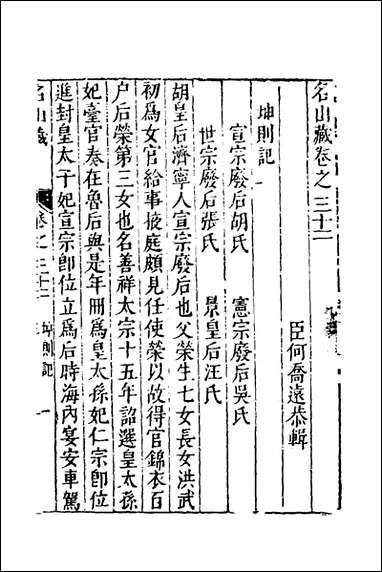 名山藏卷之三十二
臣何喬遠恭輯
坤則記
宣宗廢后胡氏　憲宗廢后吳氏
世宗廢后張氏　景皇后汪氏
胡皇后濟寧人宣宗廢后也父榮生七女長女洪武
初爲女官給事掖庭頗見任使榮以故得官錦衣百
户后榮第三女也名善祥太宗十五年詔選皇太孫
妃臺官奏在魯后與是年冊爲皇太孫妃仁宗即位
進封皇太子妃宣宗即位立爲后時海內宴安車駕
名山藏　卷之三十二　坤則記　一